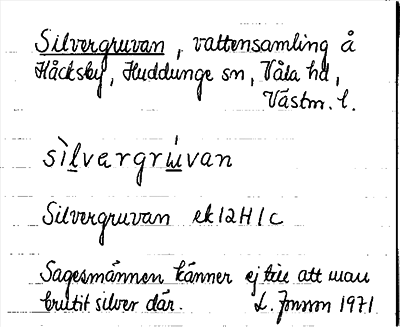 Silvergruvan, vattensamling å
Håcksby, Huddunge sn, Våla hd,
Västm. l.
sìlvergrúvan
Silvergruvan ek 12H1c
Sagesmännen känner ej till att man
brutit silver där. L. Jonson 1971